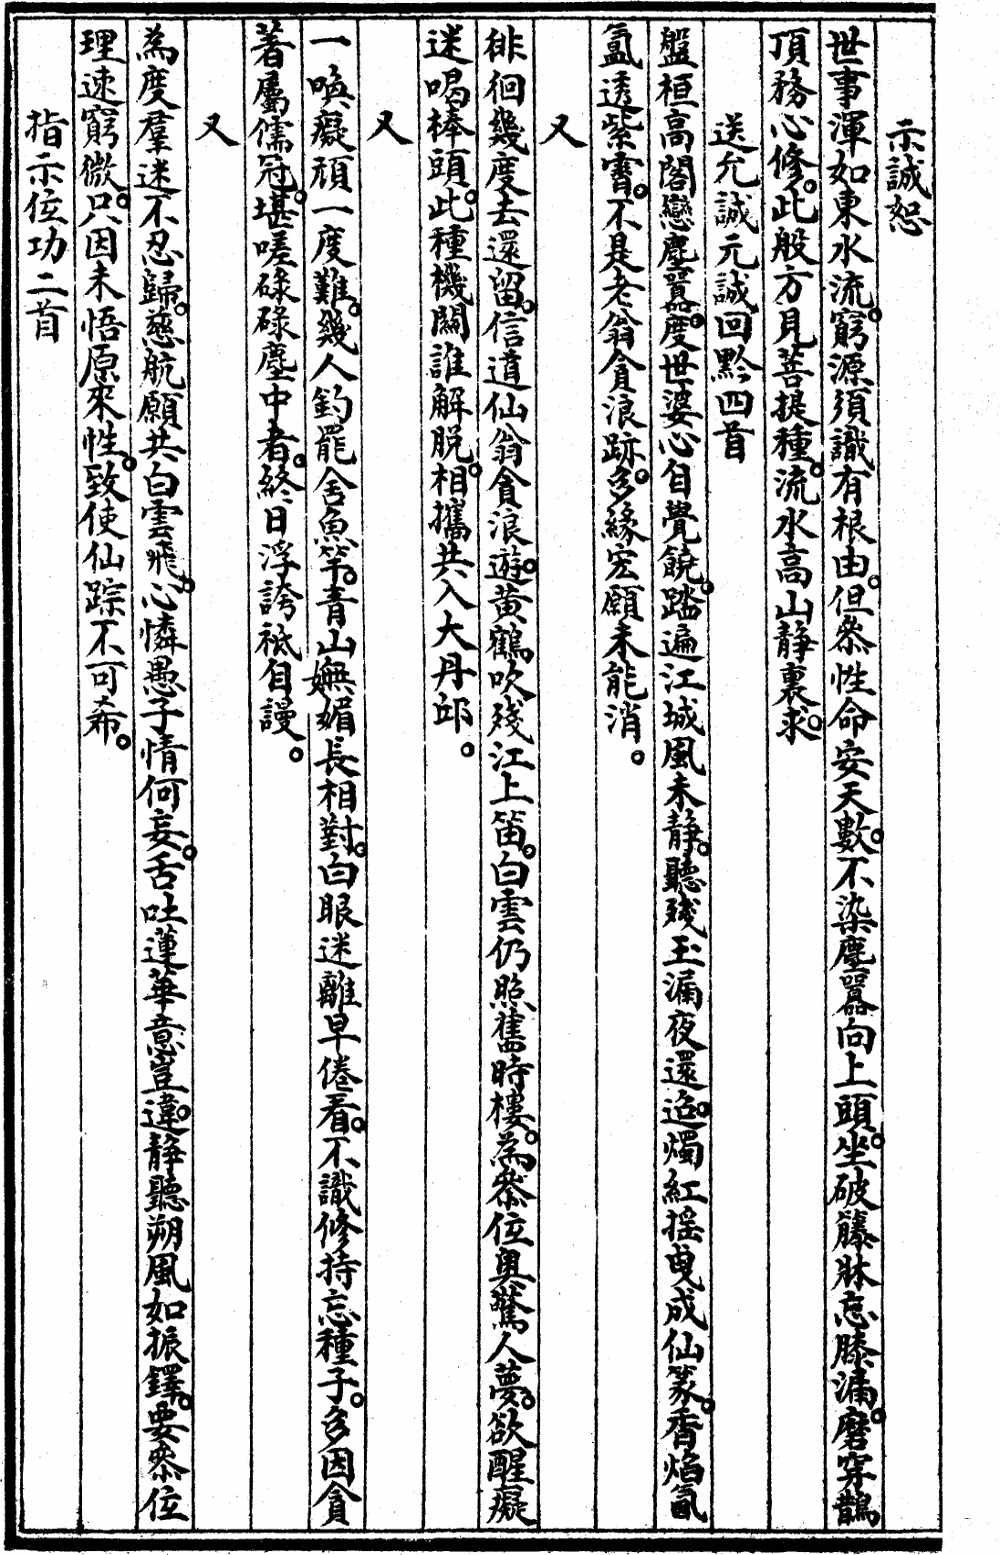 示誠恕
世事渾如東水流。窮源須識有根由。但叅性命安天數。不染塵囂向上頭。坐破籐牀忘膝漏。磨穿鵲
頂務心修。此般方見菩提種。流水高山靜裏求。
送允誠元誠回黔四首
盤桓高閣戀塵囂。度世婆心自覺饒。踏遍江城風未靜。聽殘玉漏夜還迢。燭紅搖曳成仙篆。香焰氤
氳透紫霄。不是老翁貪浪跡。多緣宏願未能消。
又
徘徊幾度去還留。信道仙翁貪浪遊。黃鶴吹殘江上笛。白雲仍照舊時樓。為叅位奧驚人夢。欲醒癡
迷喝棒頭。此種機關誰解脫。相攜共入大丹邱。
又
一喚癡頑一度難。幾人釣罷舍魚竿。青山嫵媚長相對。白眼迷離早倦看。不識修持忘種子。多因貪
著屬儒冠。堪嗟碌碌塵中者。終日浮誇祇自謾。
又
為度羣迷不忍歸。慈航願共白雲飛。心憐愚子情何妄。舌吐蓮華意豈違。靜聽朔風如振鐸。要叅位
理速窮微。只因未悟原來性。致使仙踪不可希。
指示位功二首